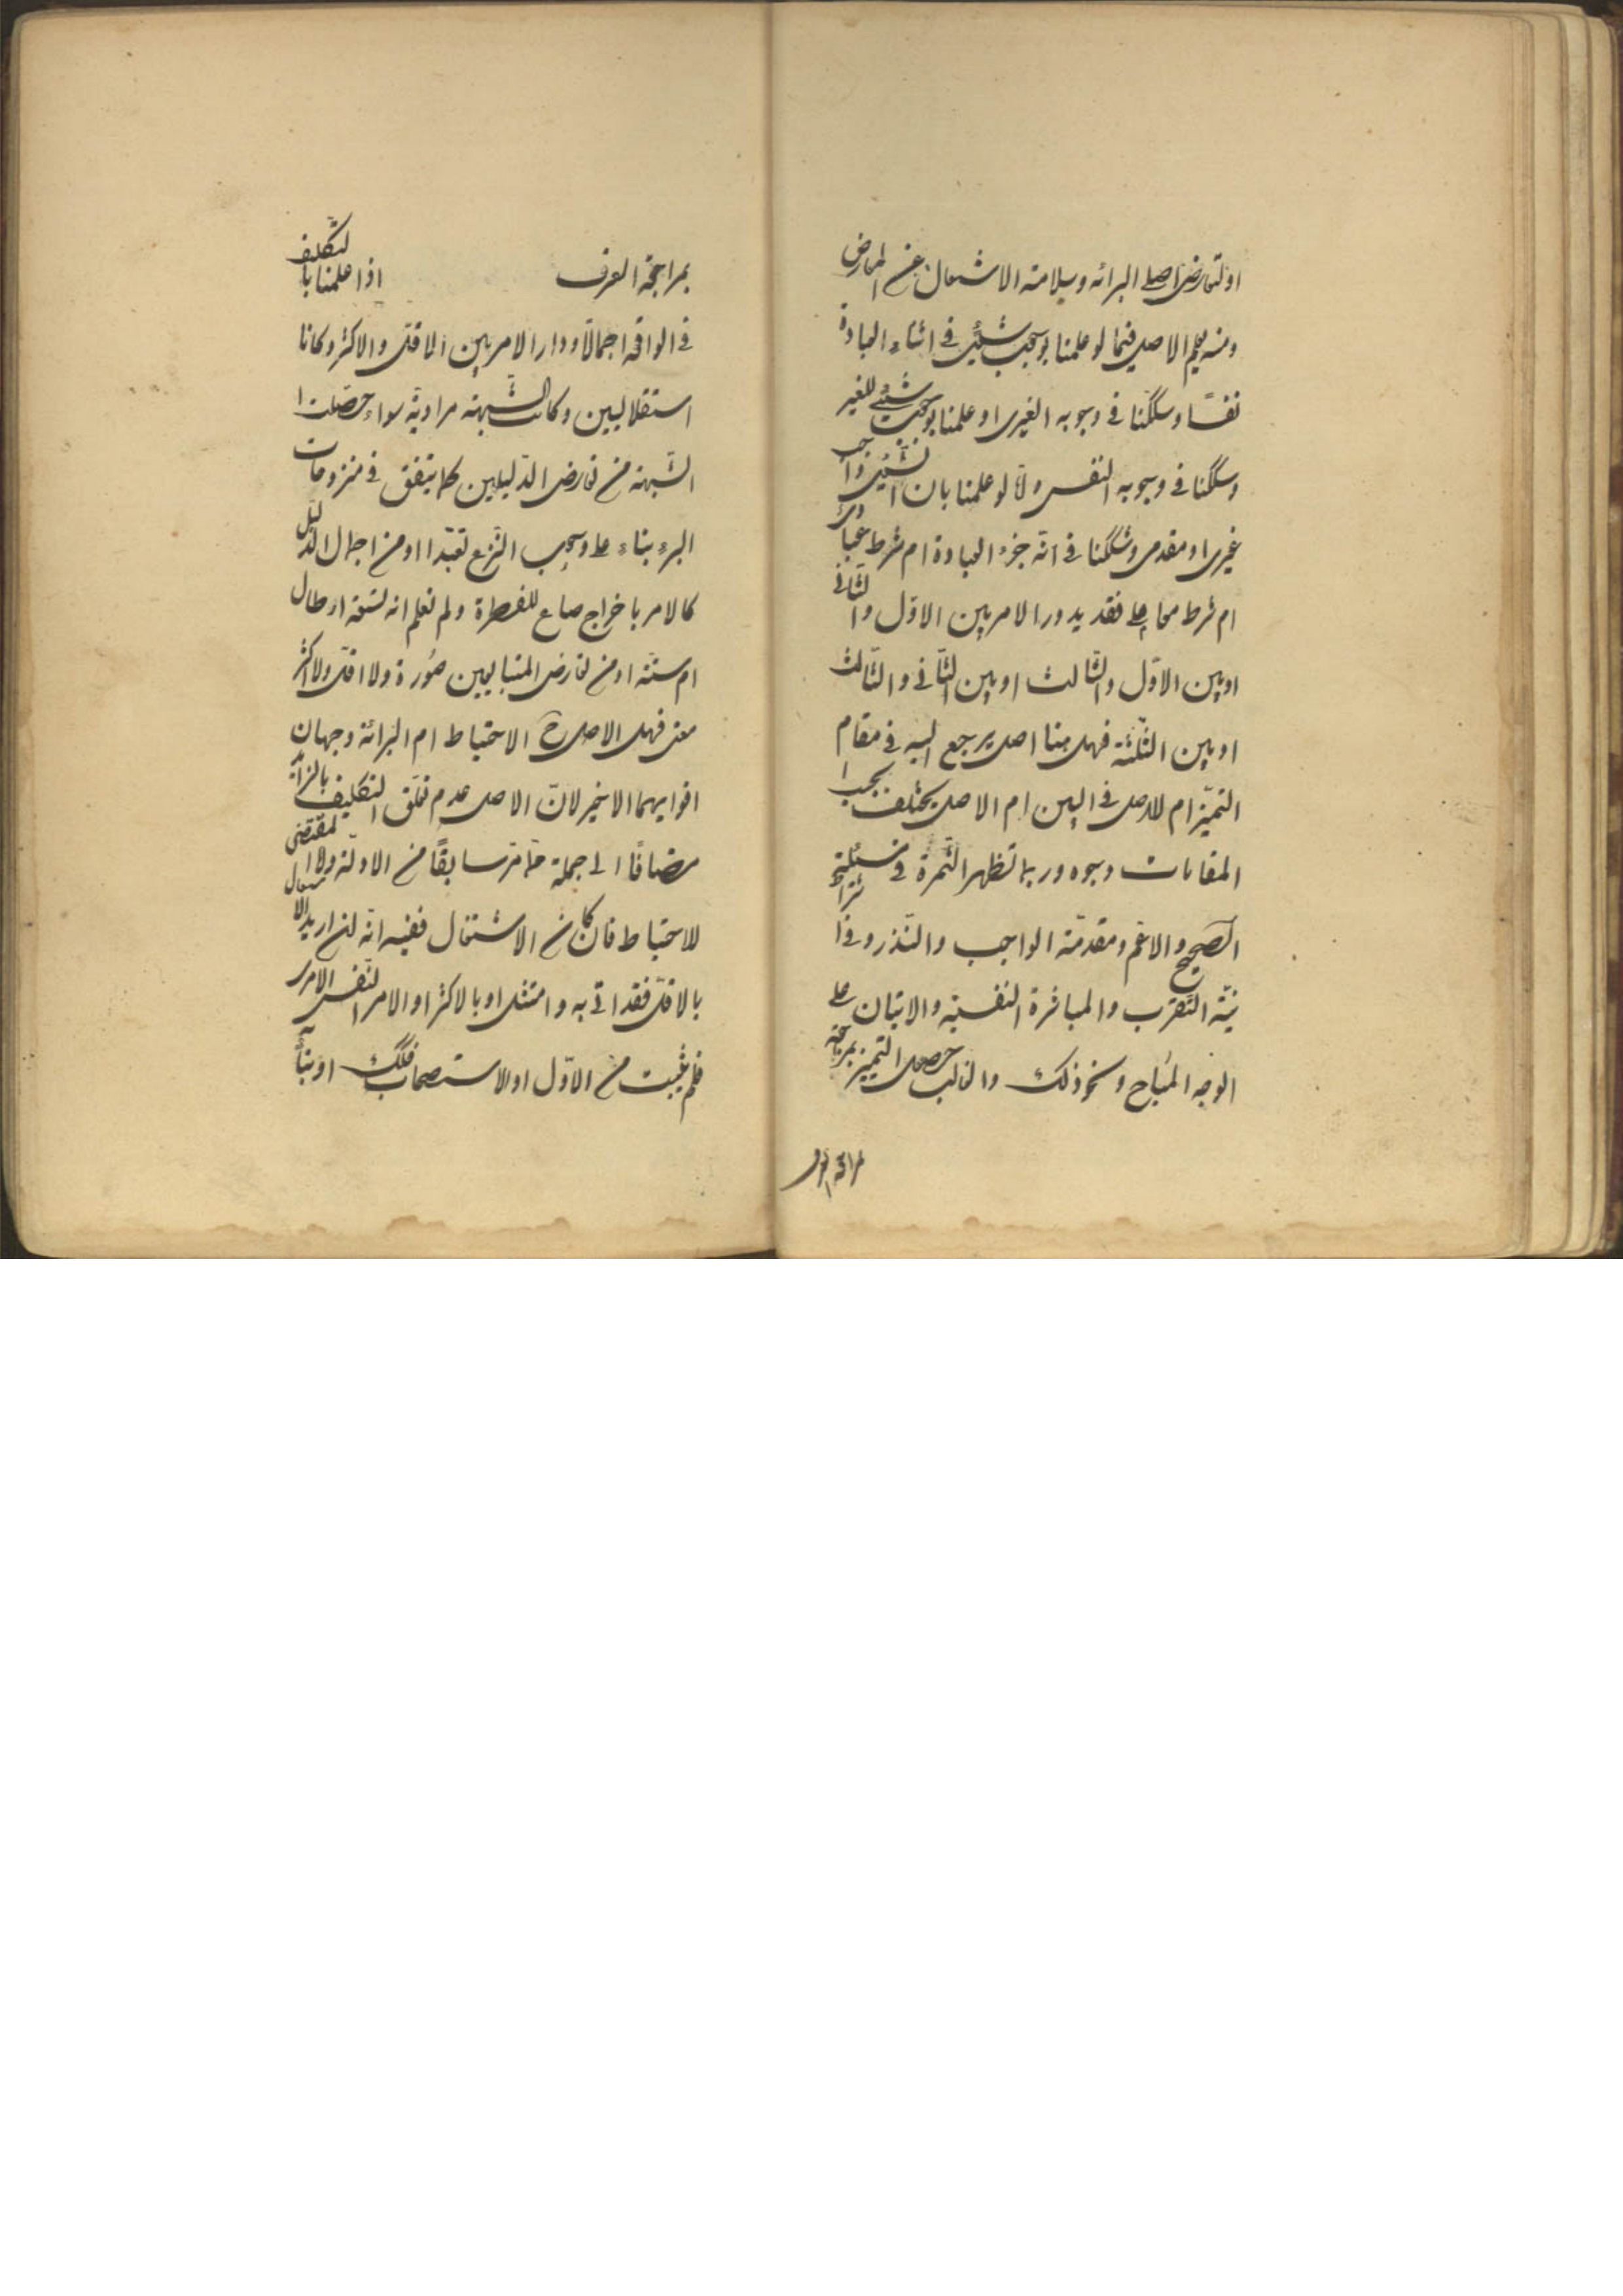 او لتعارض اصلى البرائه وسلامته الاشتعال عن المعارض
ومنه يعلم الاصل فيما لو علمنا بوجوب شيئ في اثناء العبادة
نفسًا وشككنا في وجوبه الغيرى او علمنا بوجوب شيئ للغير
وشككنا في وجوبه النفسى ولا لو علمنا بان الشيئ واجب
غيرى او مقدمى وشككنا في انه جزء العبادة ام شرط عبادى
ام شرط معاملى فقد يدور الامر بين الاول والثانى
او بين الاول والثالث او بين الثانى والثالث
او بين الثلثة فهل هنا اصل يرجع اليه في مقام
التميز ام لا اصل في البين ام الاصل يختلف بحسب
المقامات وجوه وربما تظهر الثمرة في مسئلتى
الصحيح والاعم ومقدمة الواجب والنذر وفى اشتراط
نية التقرب والمباشرة النفسية والاتيان على
الوجه المباح ونحو ذلك والغالب حصل التميز بمراجعة
بمراجعة العرف
بمراجعة العرف اذا علمنا بالتكليف
في الواقع اجمالا ودار الامر بين الاقل والاكثر وكانا
استقلاليين وكانت الشبهة مرادية سواء حصلت
الشبهة من تعارض الدليلين كما يتفق في منزوحات
البئر بناء على وجوب النزح تعبدا او من اجمال الدليل
كالامر باخراج صاع للفطرة ولم نعلم انه تسعة ارطال
ام ستة او من تعارض المتباينين صورة ولا اقل ولا اكثر
معنى فهل الاصل ح الاحتياط ام البرائة وجهان
اقوايهما الاخير لان الاصل عدم تعلق التكليف بالزائد
مضافًا الى جملة مما مر سابقًا من الادلة ولا مقتضى
للاحتياط فان كان الاشتغال ففيه انه لئن اريد الاشتغال
بالاقل فقد اتى به وامتثل او بالاكثر او الامر النفس الامرى
فلم يثبت من الاول او الاستصحاب فكك او بناء